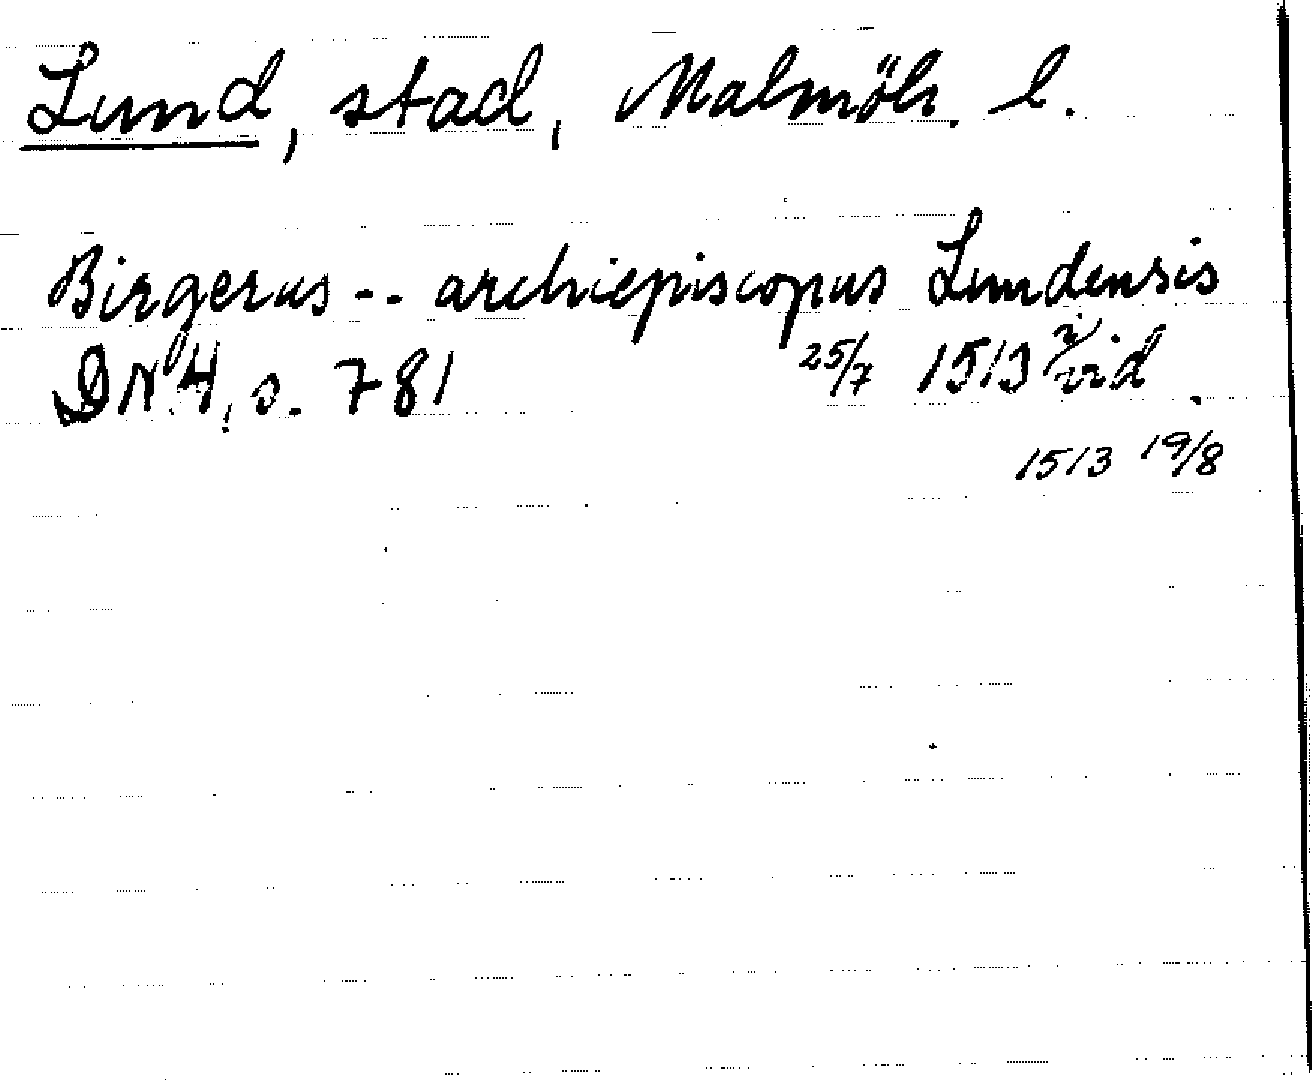 Lund, stad, Malmöh. l.
Birgerus -- archiepiscopus Lundensis
DN 4, s. 781 25/7 1513 i vid.
1513 19/8